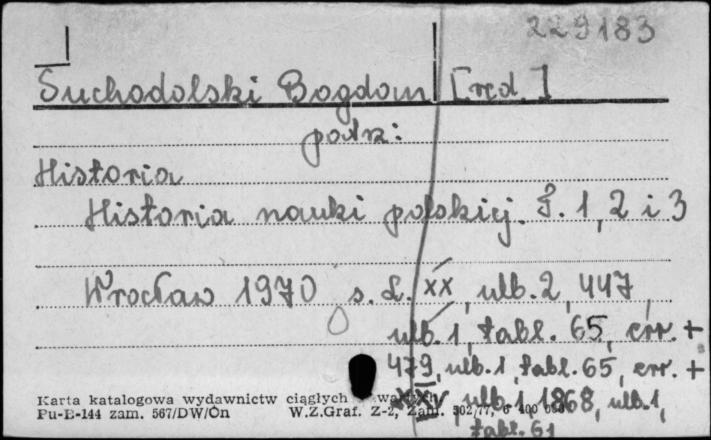 229183
Suchodolski Bogdan [red.]
patrz:
Historia
Historia nauki polskiej. T. 1, 2 i 3
Wrocław 1970 s. L. XX, ulb. 2, 447,
ulb. 1, tabl. 65, err. +
479, ulb. 1, tabl. 65, err. +
XXXV, ulb. 1, 1868, ulb. 1,
tabl. 61
Karta katalogowa wydawnictw ciągłych
Pu-B-144 zam. 567/DW/Ón W.Z.Graf. Z-2, Zam. 302/77, 6 400 000